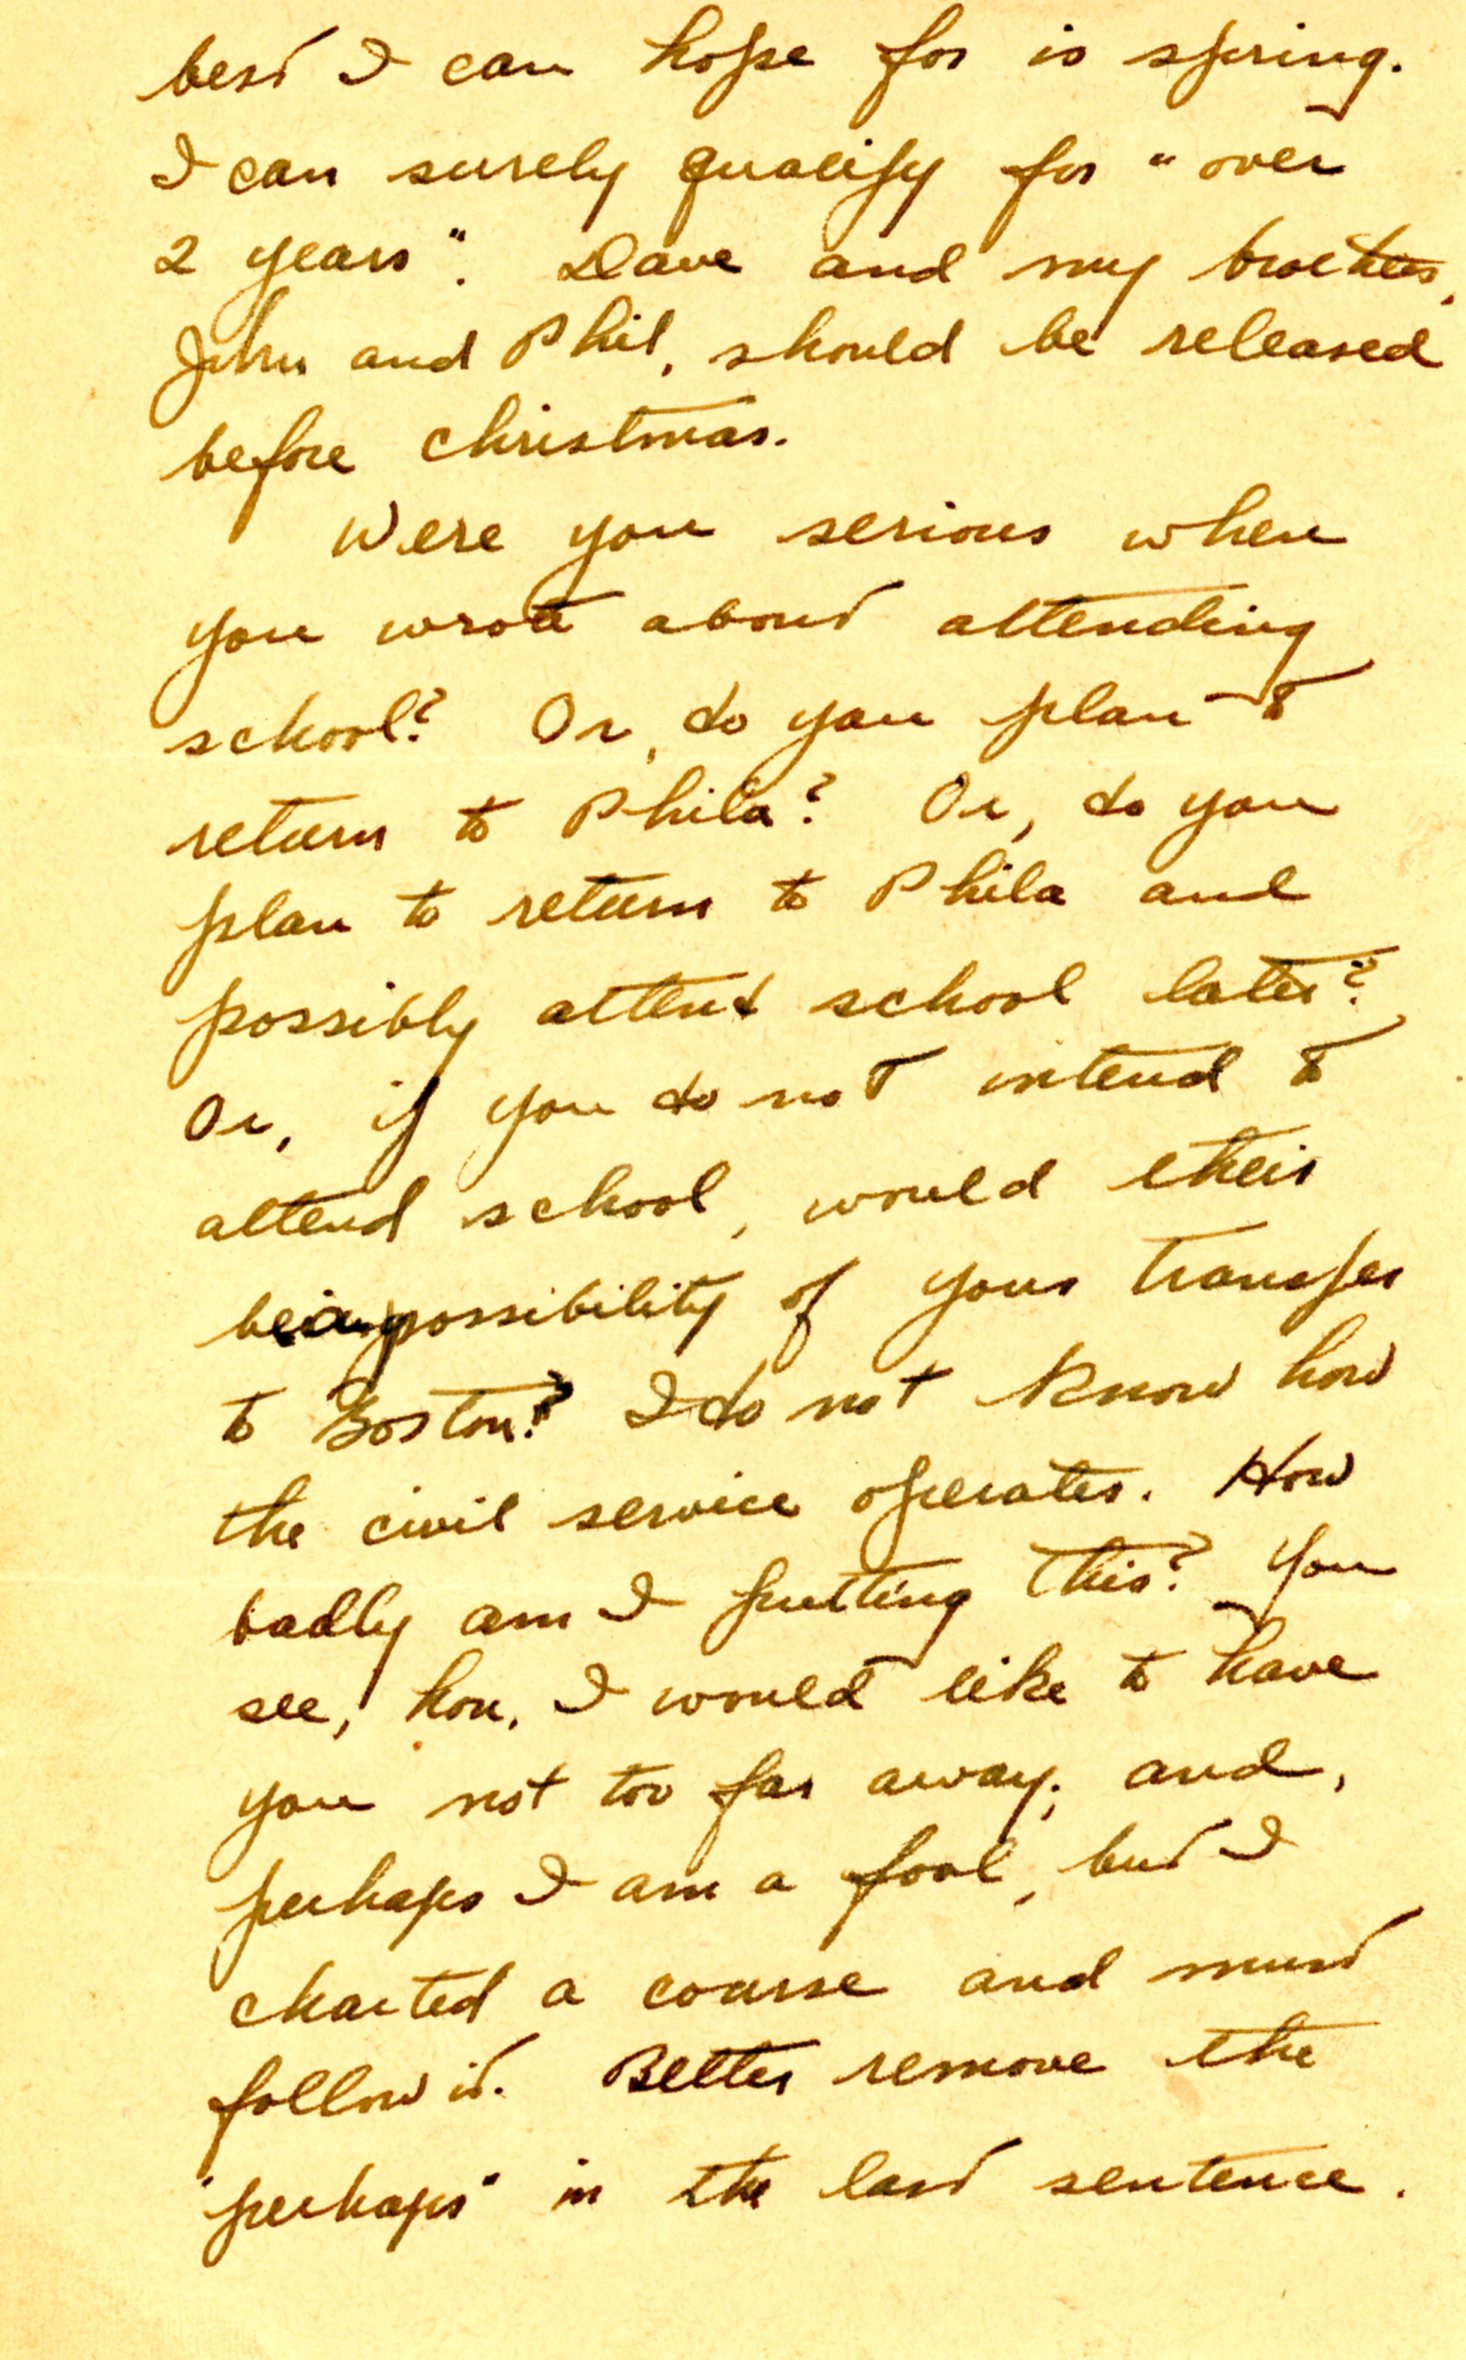 best I can hope for is spring.
I can surely qualify for "over
2 years". Dave and my brothers,
John and Phil, should be released
before Christmas.
Were you serious when
you wrote about attending
school? Or, do you plan to
return to Phila? Or, do you
plan to return to Phila and
possibly attend school later?
Or, if you do not intend to
attend school, would their
be a possibility of your transfer
to Boston? I do not know how
the civil service operates. How
badly am I putting this? You
see, hon, I would like to have
you not too far away; and,
perhaps I am a fool, but I
charted a course and must
follow it. Better remove the
"perhaps" in the last sentence.